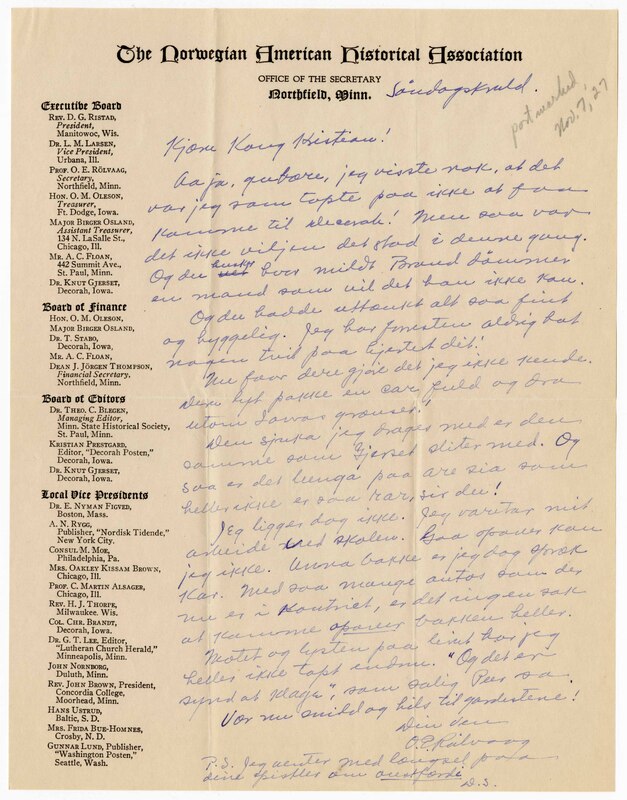 The Norwegian American Historical Association
OFFICE OF THE SECRETARY
Northfield, Minn.
Søndagskveld.
postmarked
Nov. 7, '27
Executive Board
REV. D. G. RISTAD,
President,
Manitowoc, Wis.
DR. L. M. LARSEN,
Vice President,
Urbana, Ill.
PROF. O. E. RÖLVAAG,
Secretary,
Northfield, Minn.
HON. O. M. OLESON,
Treasurer,
Ft. Dodge, Iowa.
MAJOR BIRGER OSLAND,
Assistant Treasurer,
134 N. LaSalle St.,
Chicago, Ill.
MR. A. C. FLOAN,
442 Summit Ave.,
St. Paul, Minn.
DR. KNUT GJERSET,
Decorah, Iowa.
Board of Finance
HON. O. M. OLESON,
MAJOR BIRGER OSLAND,
DR. T. STABO,
Decorah, Iowa.
MR. A. C. FLOAN,
DEAN J. JÖRGEN THOMPSON,
Financial Secretary,
Northfield, Minn.
Board of Editors
DR. THEO. C. BLEGEN,
Managing Editor,
Minn. State Historical Society,
St. Paul, Minn.
KRISTIAN PRESTGARD,
Editor, "Decorah Posten,"
Decorah, Iowa.
DR. KNUT GJERSET,
Decorah, Iowa.
Local Vice Presidents
DR. E. NYMAN FIGVED,
Boston, Mass.
A. N. RYGG,
Publisher, "Nordisk Tidende,"
New York City.
CONSUL M. MOE,
Philadelphia, Pa.
MRS. OAKLEY KISSAM BROWN,
Chicago, Ill.
PROF. C. MARTIN ALSAGER,
Chicago, Ill.
REV. H. J. THORPE,
Milwaukee. Wis.
COL. CHR. BRANDT,
Decorah, Iowa.
DR. G. T. LEE, Editor,
"Lutheran Church Herald,"
Minneapolis, Minn.
JOHN NORNBORG,
Duluth, Minn.
REV. JOHN BROWN, President,
Concordia College,
Moorhead, Minn.
HANS USTRUD,
Baltic, S. D.
MRS. FRIDA BUE-HOMNES,
Crosby, N. D.
GUNNAR LUND, Publisher,
"Washington Posten,"
Seattle, Wash.
Kjære Kong Kristian!
Aa ja, gubare, jeg visste nok, at det
var jeg som tapte paa ikke at faa
komme til Decorah! Men saa var
det ikke viljen det stod i denne gang.
Og du husker hvor mildt Brand dömmer
en mand som vil det han ikke kan.
Og du hadde uttænkt alt saa fint
og hyggelig. Jeg har foresten aldrig hat
nogen tvil paa hjertet dit!
Nu faar dere gjöre det jeg ikke kunde.
pakke en car full og dra
utom Iowas grenser!
Den sjuka jeg drages med er den
samme som Gjerset sliter med. Og
saa er det lunga paa are sia som
heller ikke er saa rar, sir du!
Jeg ligger dog ikke. Jeg varetar mit
arbeide ved skolen. Gaa opover kan
jeg ikke. Unna bakke er jeg dog spræk
kar. Med saa mange autos som der
nu er i kontriet, er det ingen sak
at komme opover bakken heller.
Motet og lysten paa livet har jeg
heller ikke tapt endnu. "Og det er
synd at klage", som salig Per sa.
Vær nu snild og hils til gardistene!
Din ven
O. E. Rölvaag
P.S. Jeg venter med længsel paa
dine epistler om
D.S.